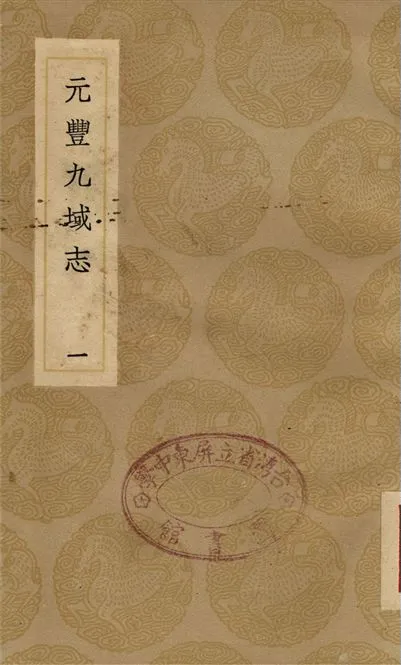 元豐九域志
一
台灣省立屏東中學
圖書館